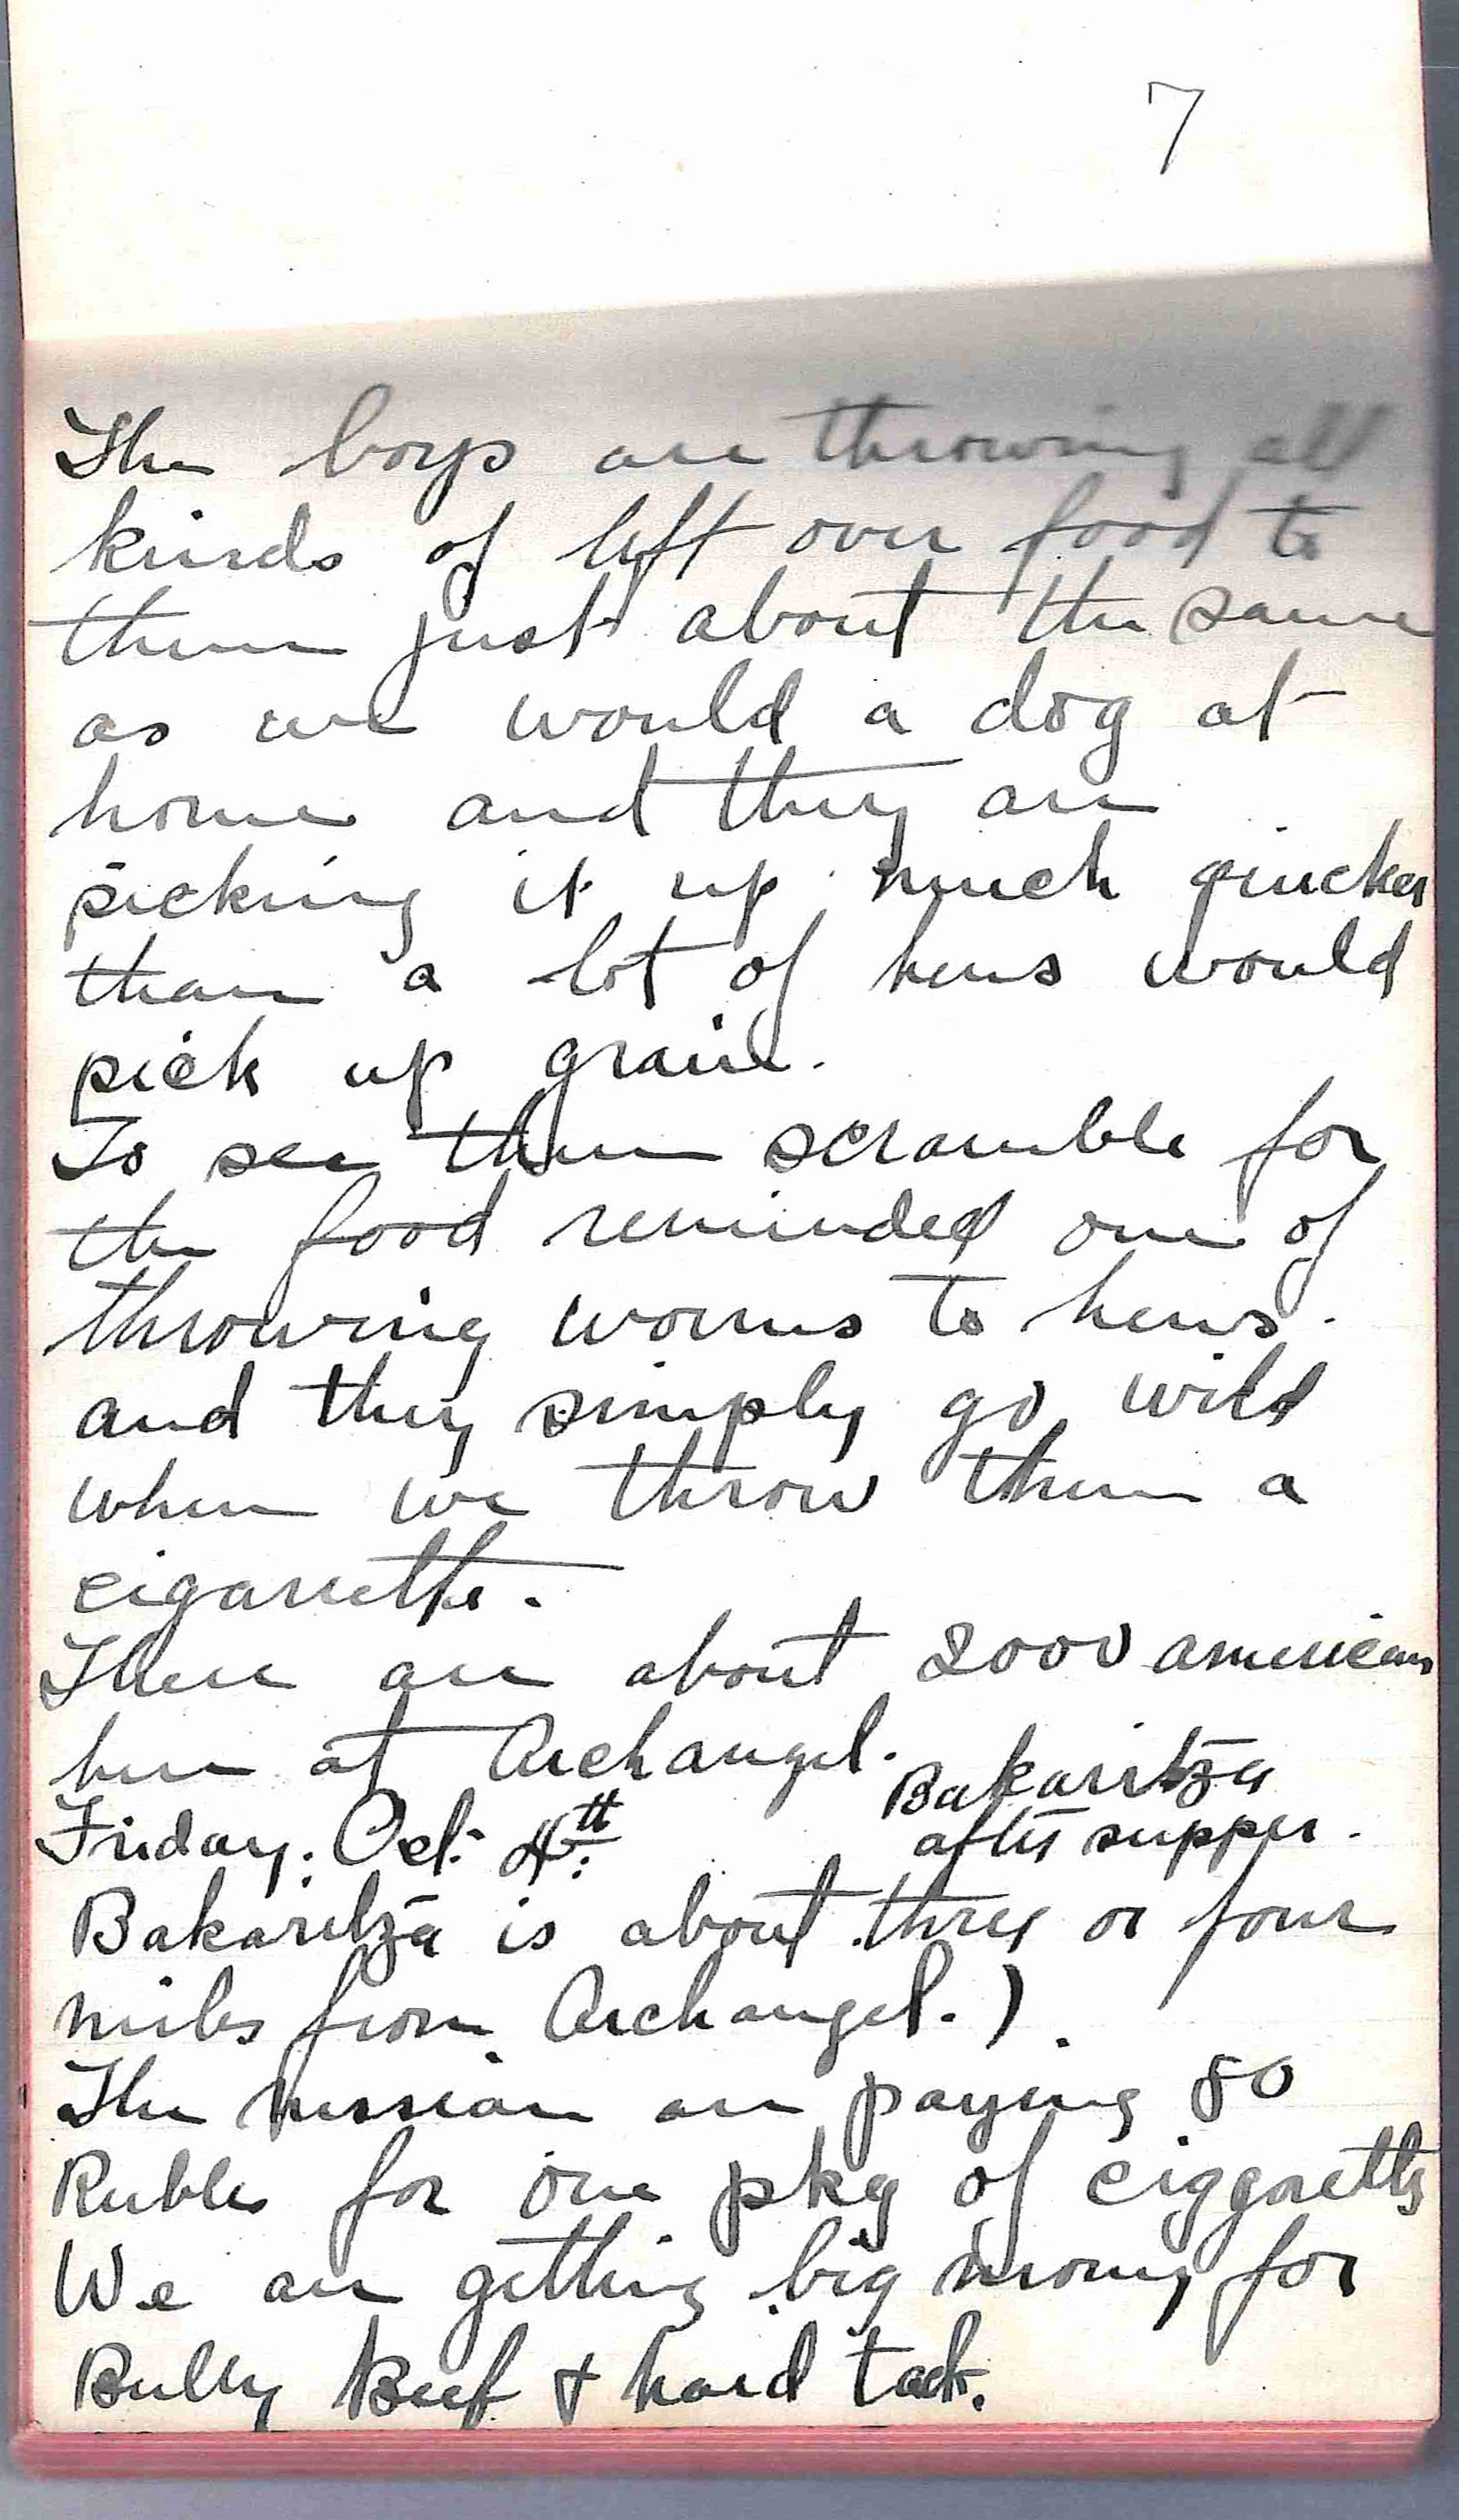 7
The boys are throwing all
kinds of left over food to
them just about the same
as we would a dog at
home and they are
picking it up much qiucker
than a lot of hens would
pick up grain.
To see them scramble for
the food reminded one of
throwing worms to hens.
and they simply go wild
when we throw them a
cigarrette.
There are about 2000 americans
here at Archangel.
Bakaritza
Friday: Oct. 4th:
after supper.
Bakaritza is about three or four
miles from Archangel.)
The russian are paying 80
Rubles for one pkg of ciggaretts
We are getting big money for
Bully Beef & hard tack.